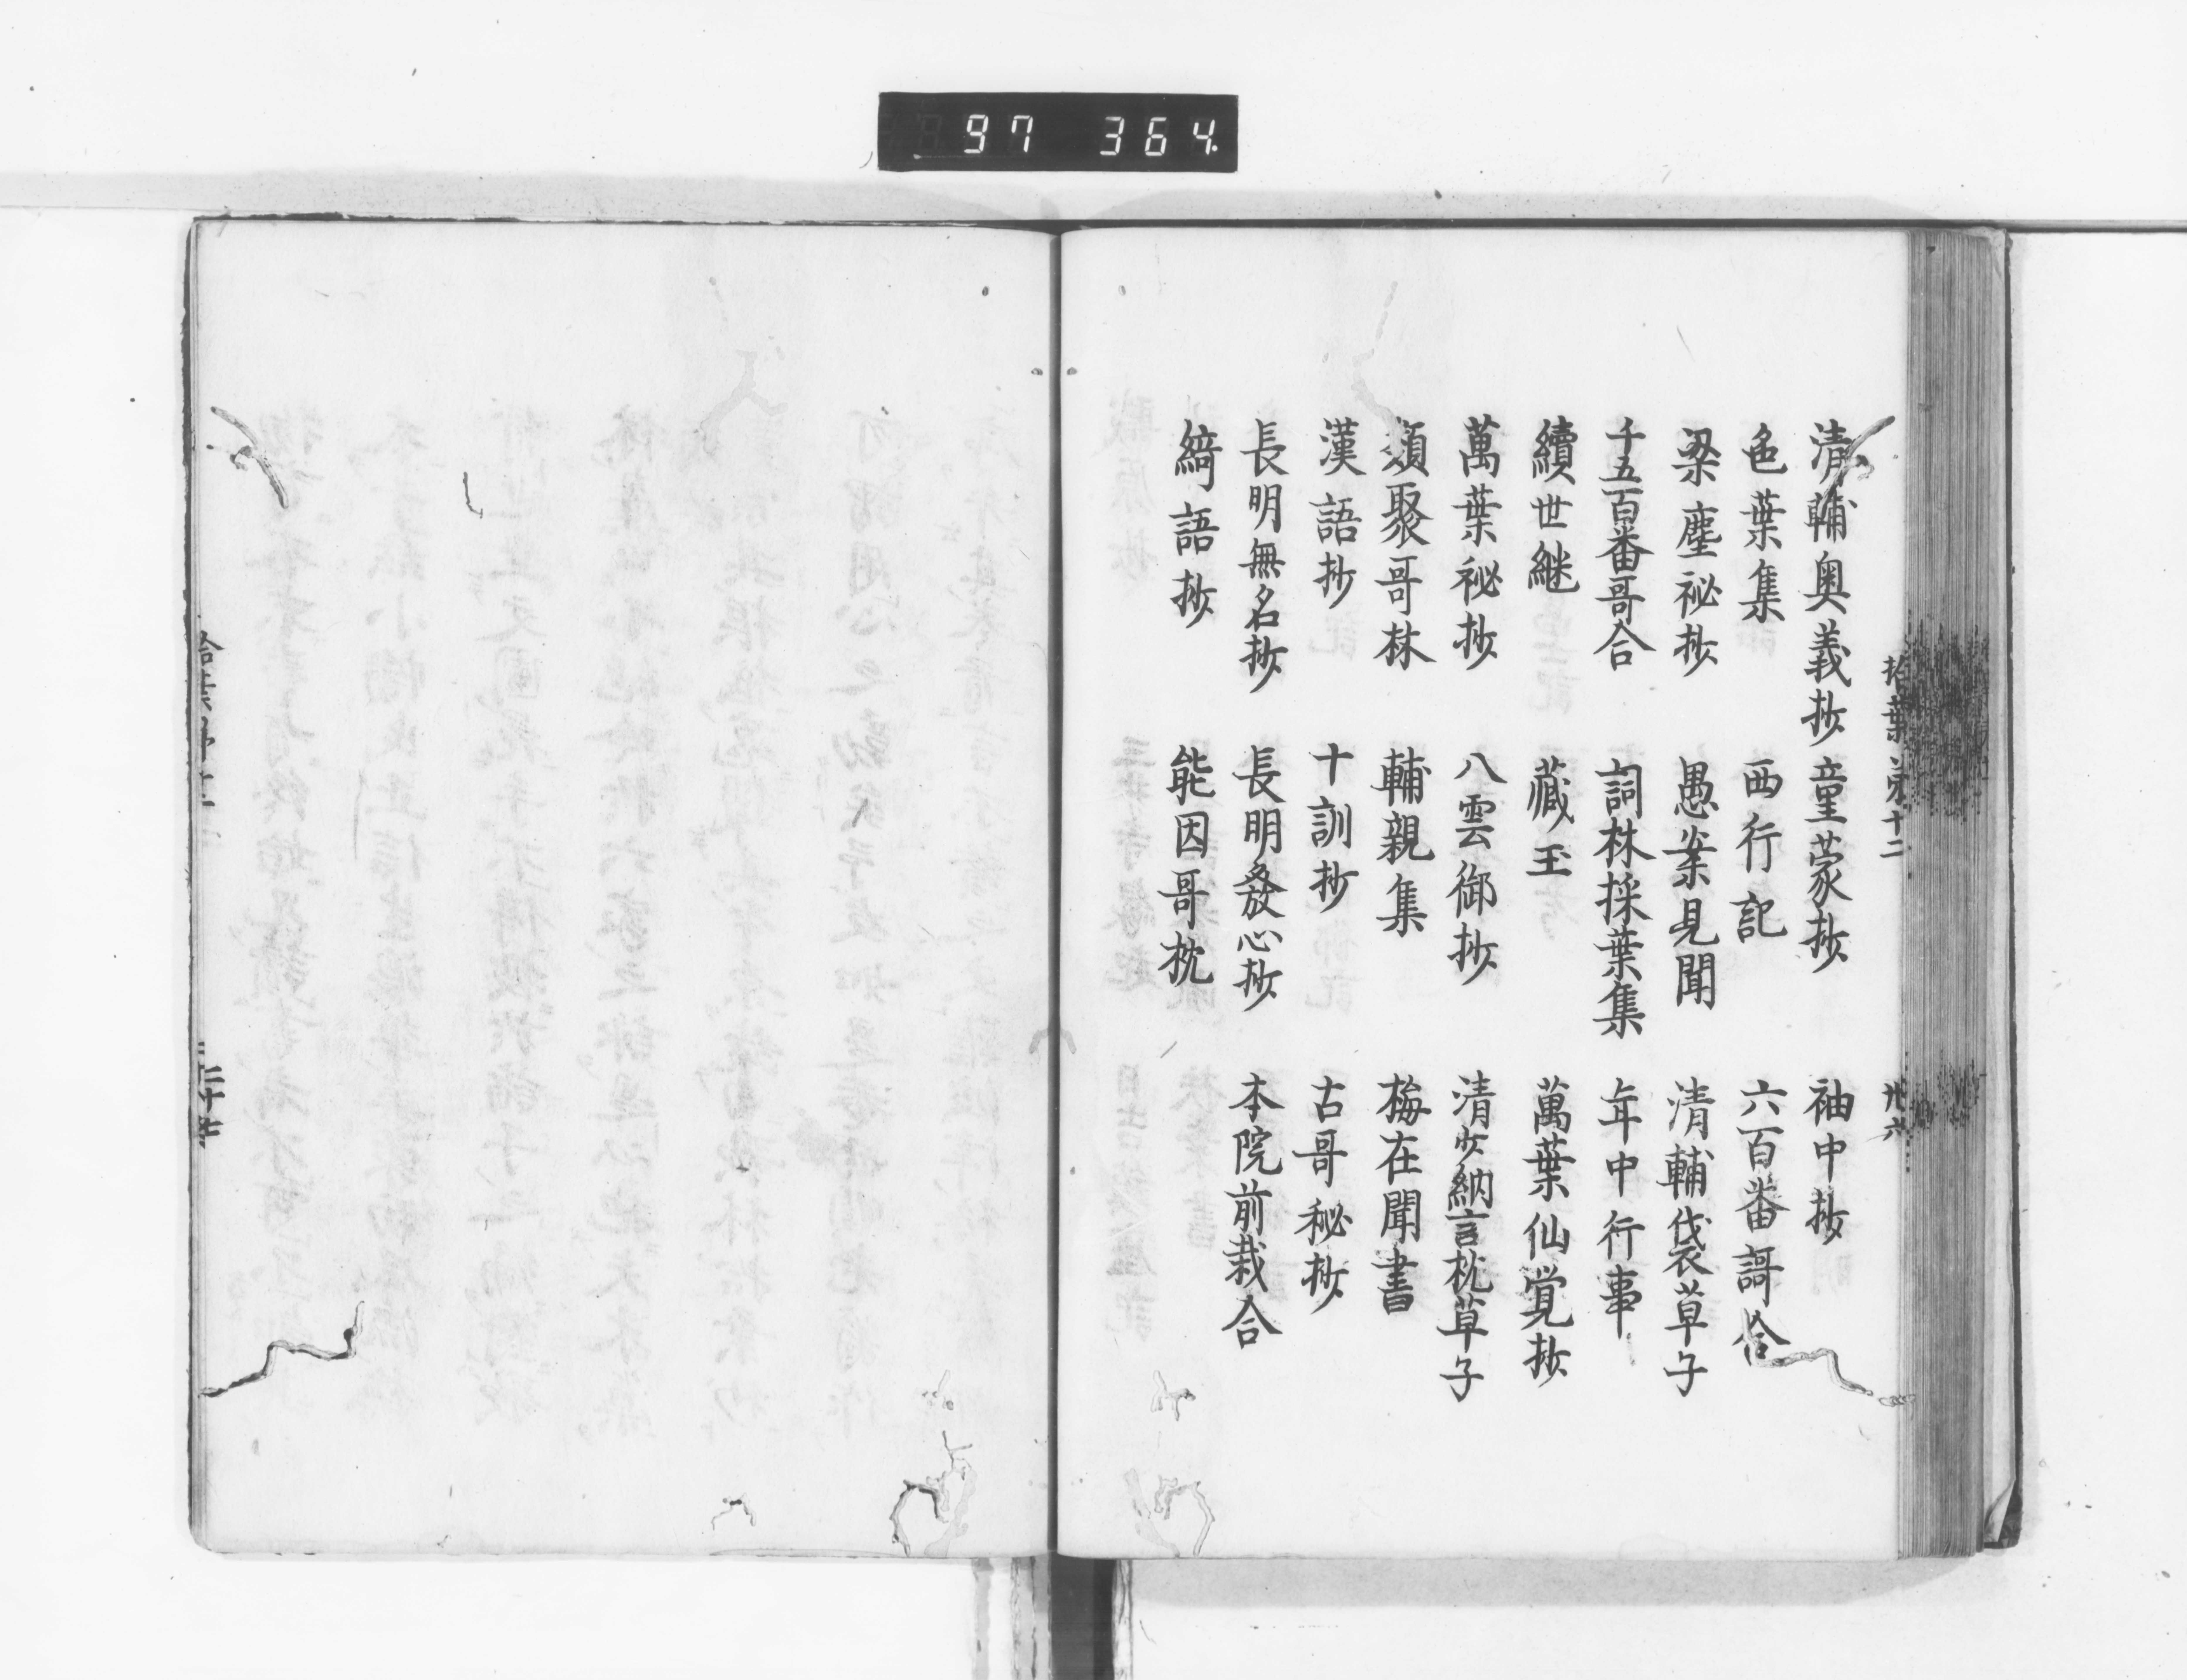 97 364
拾葉第十二 卅六
清輔奥義抄 童蒙抄 袖中抄
色葉集 西行記 六百番謌合
梁塵祕抄 愚案見聞 清輔袋草子
千五百番哥合 詞林採葉集 年中行事
續世継 藏玉 萬葉仙覚抄
萬葉祕抄 八雲御抄 清少納言枕草子
類聚哥林 輔親集 梅在聞書
漢語抄 十訓抄 古哥秘抄
長明無名抄 長明發心抄 本院前栽合
綺語抄 能因哥枕